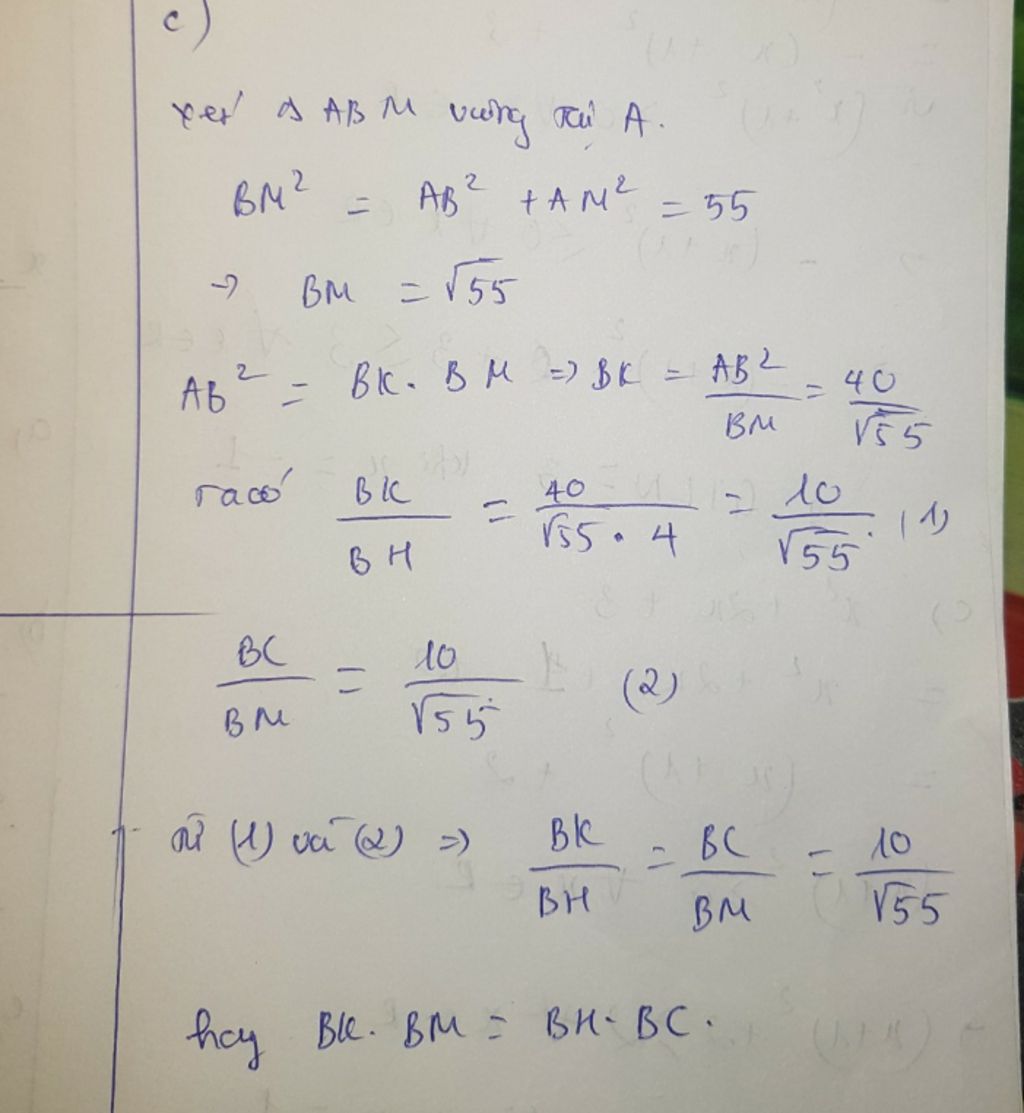 c)
xét Δ ABM vuông tại A.
BM² = AB² + AM² = 55
→ BM = √55
AB² = BK. BM => BK = AB²/BM = 40/√55
ta có BK/BH = 40/(√55 . 4) = 10/√55 . (1)
BC/BM = 10/√55 (2)
từ (1) và (2) => BK/BH = BC/BM = 10/√55
hay BK. BM = BH. BC.